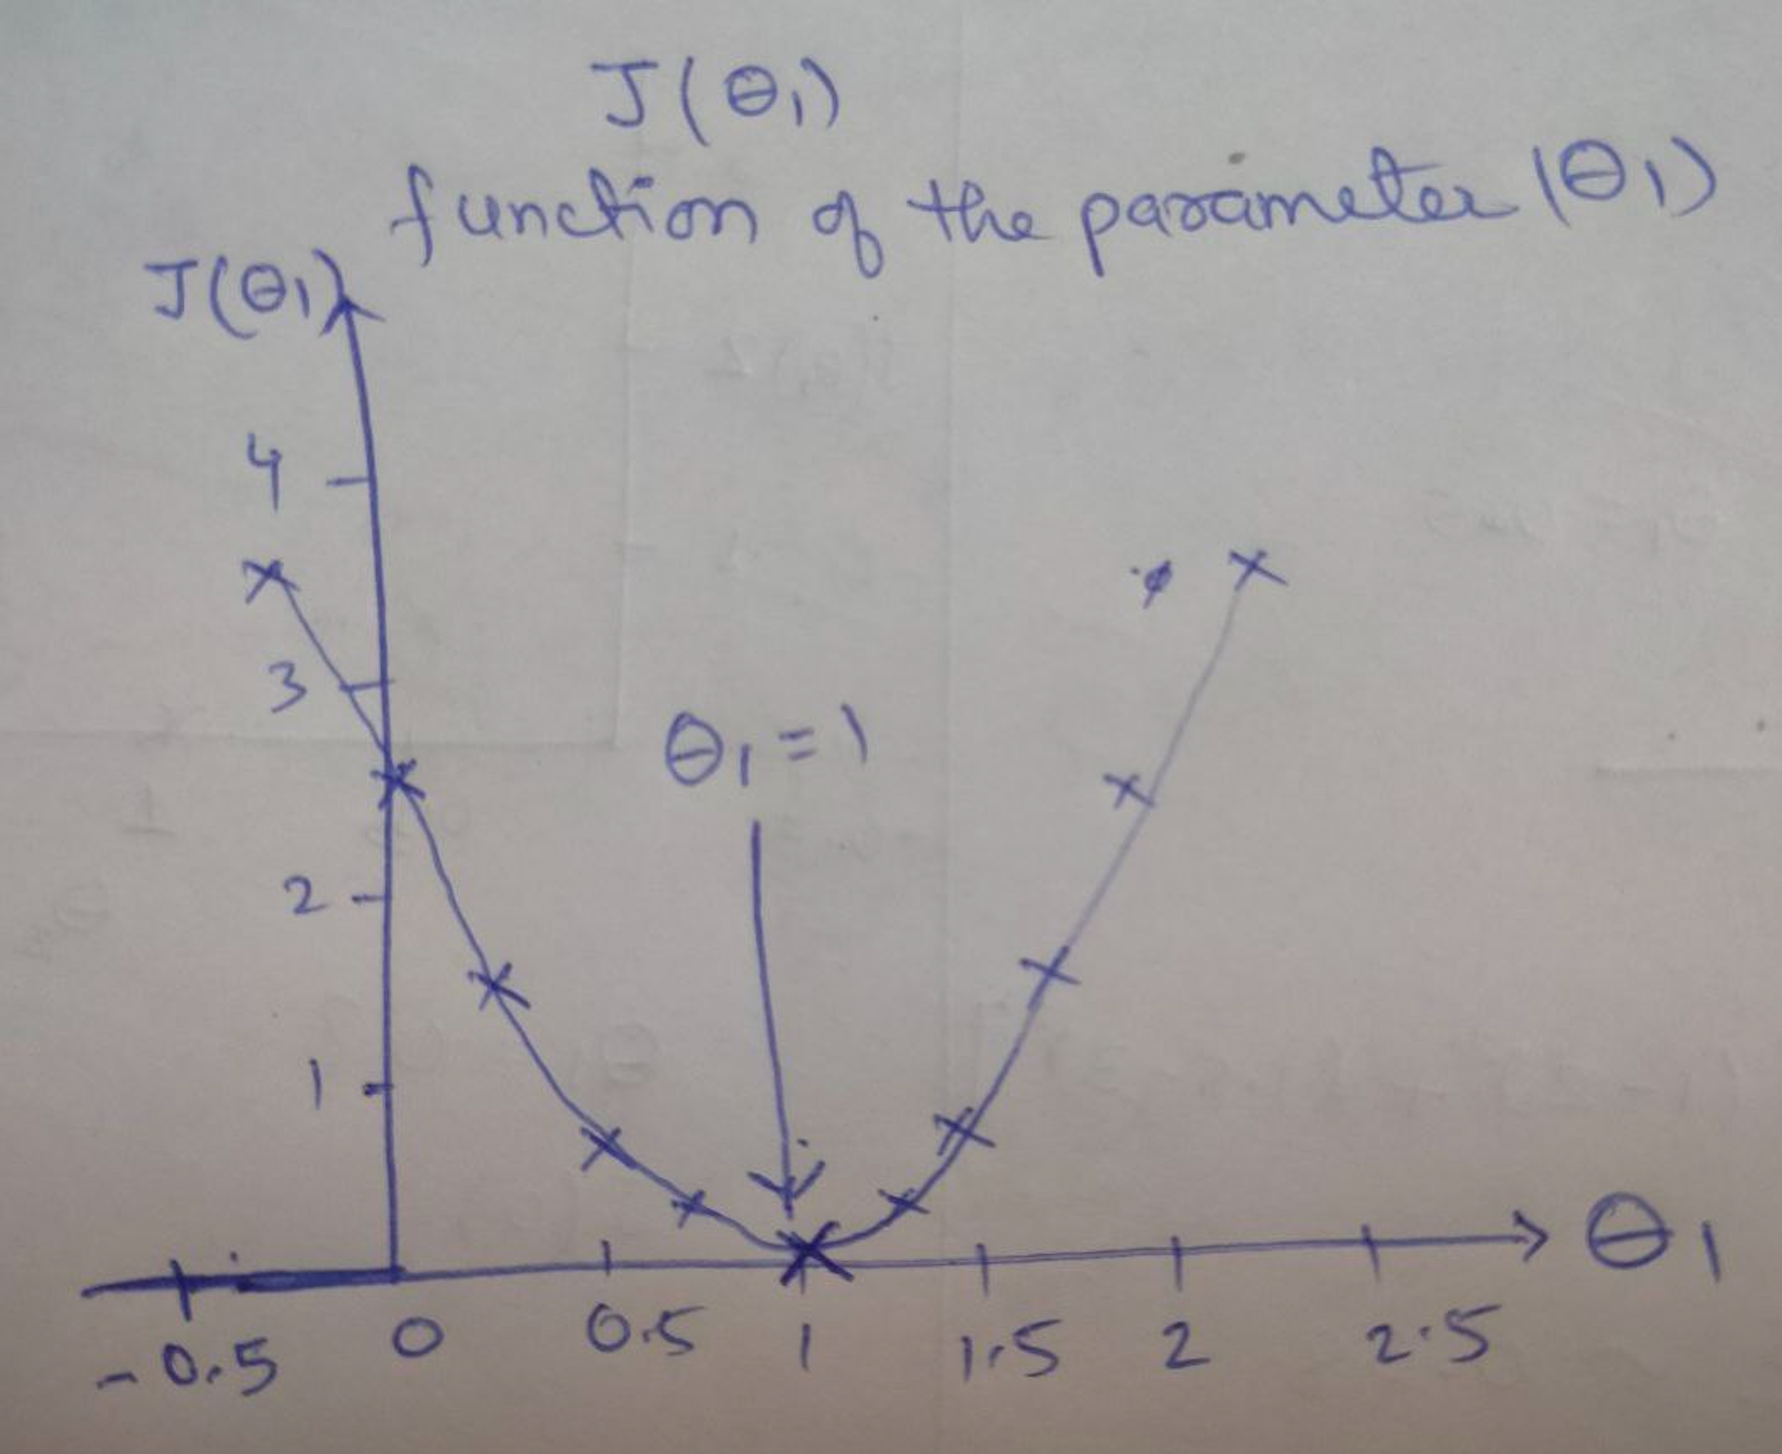 J(θ₁)
function of the parameter (θ₁)
J(θ₁)
4
3
θ₁ = 1
2
1
θ₁
-0.5 0 0.5 1 1.5 2 2.5